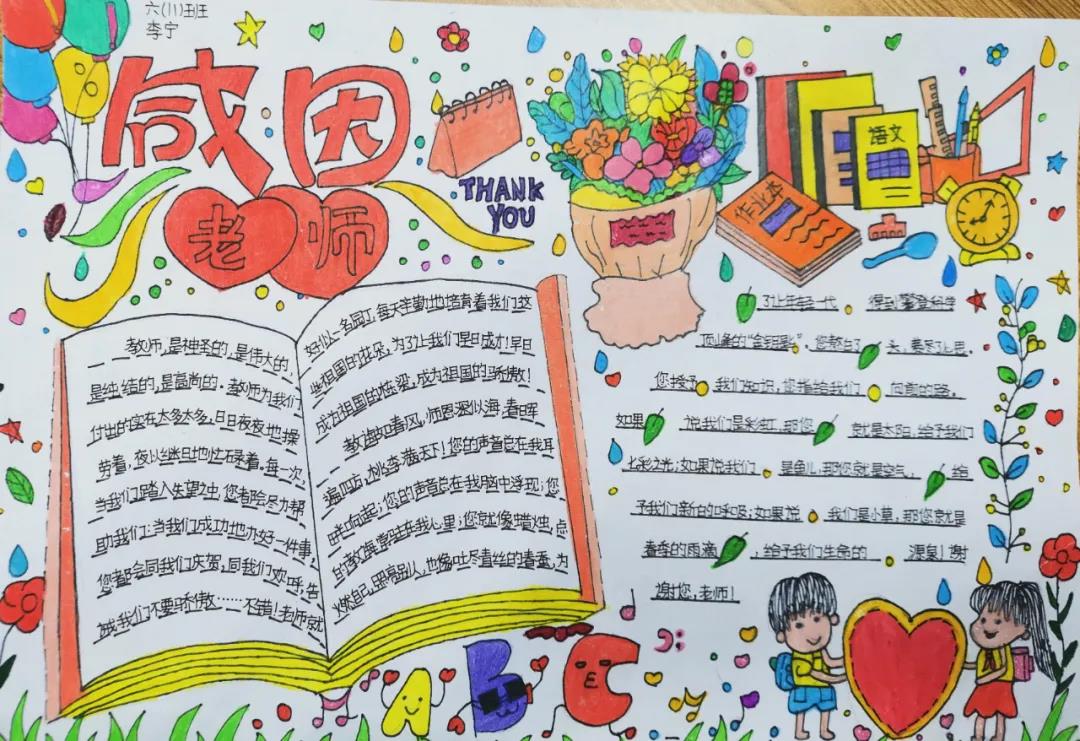 六(11)班
李宁
感恩
老师
THANK
YOU
语文
作业本
教师,是神圣的,是伟大的,
是纯洁的,是高尚的。教师为我们
付出的实在太多太多,日日夜夜地操
劳着,夜以继日地忙不录着。每一次,
当我们踏入失望之中,您者险尽力帮
助我们;当我们成功地办好一件事,
您都会同我们庆贺,同我们欢呼,告
诫我们不要骄傲……不错!老师就
好似一名园丁,每天辛勤地培育着我们这
些祖国的花朵,为了让我们早日成才!早日
成为祖国的栋梁,成为祖国的骄傲!
教诲如春风,师恩深似海,春晖
遍四方,桃李满天下!您的声音总在我耳
畔响起;您的声音总在我脑中浮现;您
的教诲常驻我心里;您就像蜡烛,点
燃自己,照亮别人,也像吐尽青丝的春蚕,为
了让年轻一代 得到攀登科学
顶峰的“金钥匙”。您熬白了 头,费尽了心思。
您授予 我们知识,您指给我们 向前的路。
如果 说我们是彩虹,那您 就是太阳,给予我们
七彩之光;如果说我们 是鱼儿,那您就是空气, 给
予我们新的呼吸;如果说 我们是小草,那您就是
春季的雨滴 ,给予我们生命的 源泉!谢
谢您,老师!
A B C